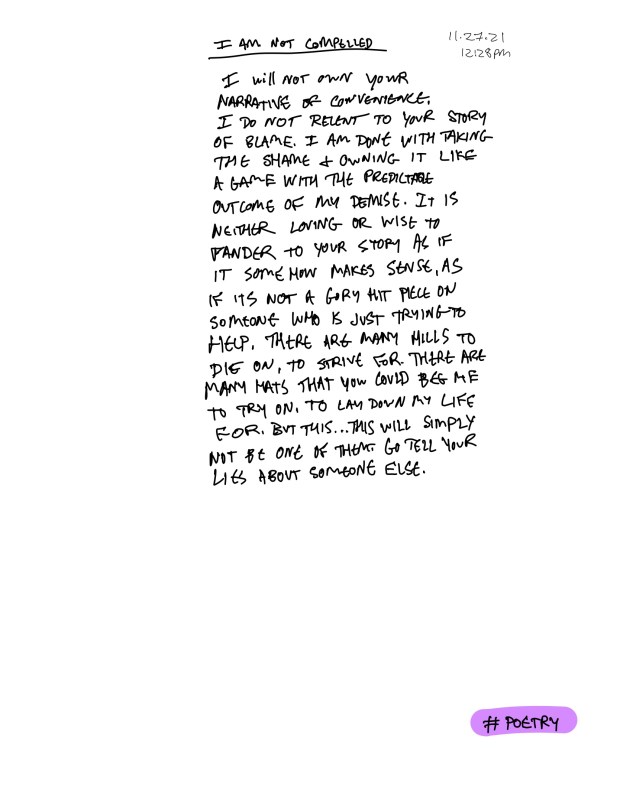 I AM NOT COMPELLED
11.27.21
12:28pm
I will NOT OWN YOUR
NARRATIVE OF CONVENIENCE.
I DO NOT RELENT TO YOUR STORY
OF BLAME. I AM DONE WITH TAKING
THE SHAME & OWNING IT LIKE
A GAME WITH THE PREDICTABLE
OUTCOME OF MY DEMISE. IT IS
NEITHER LOVING OR WISE TO
PANDER TO YOUR STORY AS IF
IT SOMEHOW MAKES SENSE, AS
IF ITS NOT A GORY HIT PIECE ON
SOMEONE WHO IS JUST TRYING TO
HELP. THERE ARE MANY HILLS TO
DIE ON, TO STRIVE FOR. THERE ARE
MANY HATS THAT YOU COULD BEG ME
TO TRY ON. TO LAY DOWN MY LIFE
FOR. BUT THIS...THIS WILL SIMPLY
NOT BE ONE OF THEM. GO TELL YOUR
LIES ABOUT SOMEONE ELSE.
# POETRY